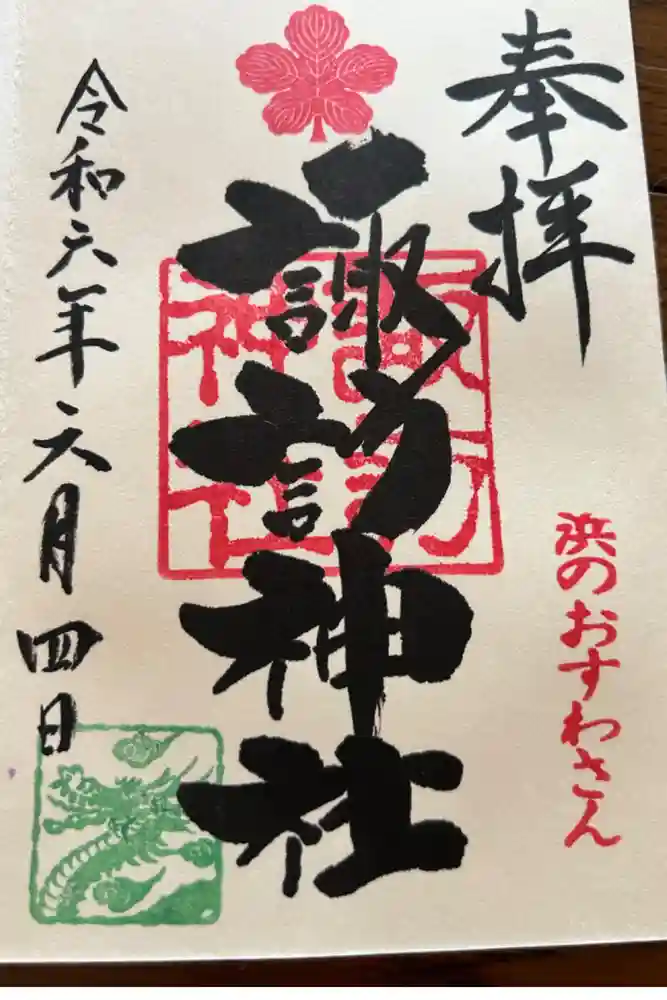 奉拝
諏訪神社
諏訪
神社
浜のおすわさん
令和六年六月四日